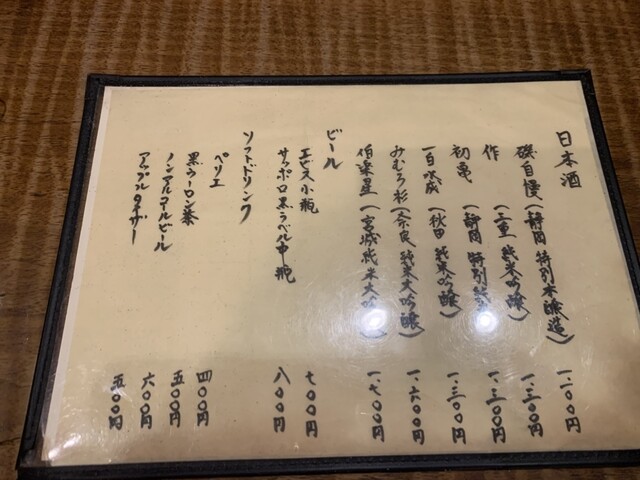 日本酒
磯自慢（静岡 特別本醸造） 一.一〇〇円
作（三重 純米吟醸） 一.三〇〇円
初亀（静岡 特別純 一.三〇〇円
一白水成（秋田 純米吟醸） 一.三〇〇円
みむろ杉（奈良 純米大吟醸） 一.六〇〇円
伯楽星（宮城 純米大吟 一.七〇〇円
ビール
エビス小瓶 七〇〇円
サッポロ黒ラベル中瓶 八〇〇円
ソフトドリンク
ペリエ 四〇〇円
黒ウーロン茶 五〇〇円
ノンアルコールビール 六〇〇円
アップルタイザー 五〇〇円